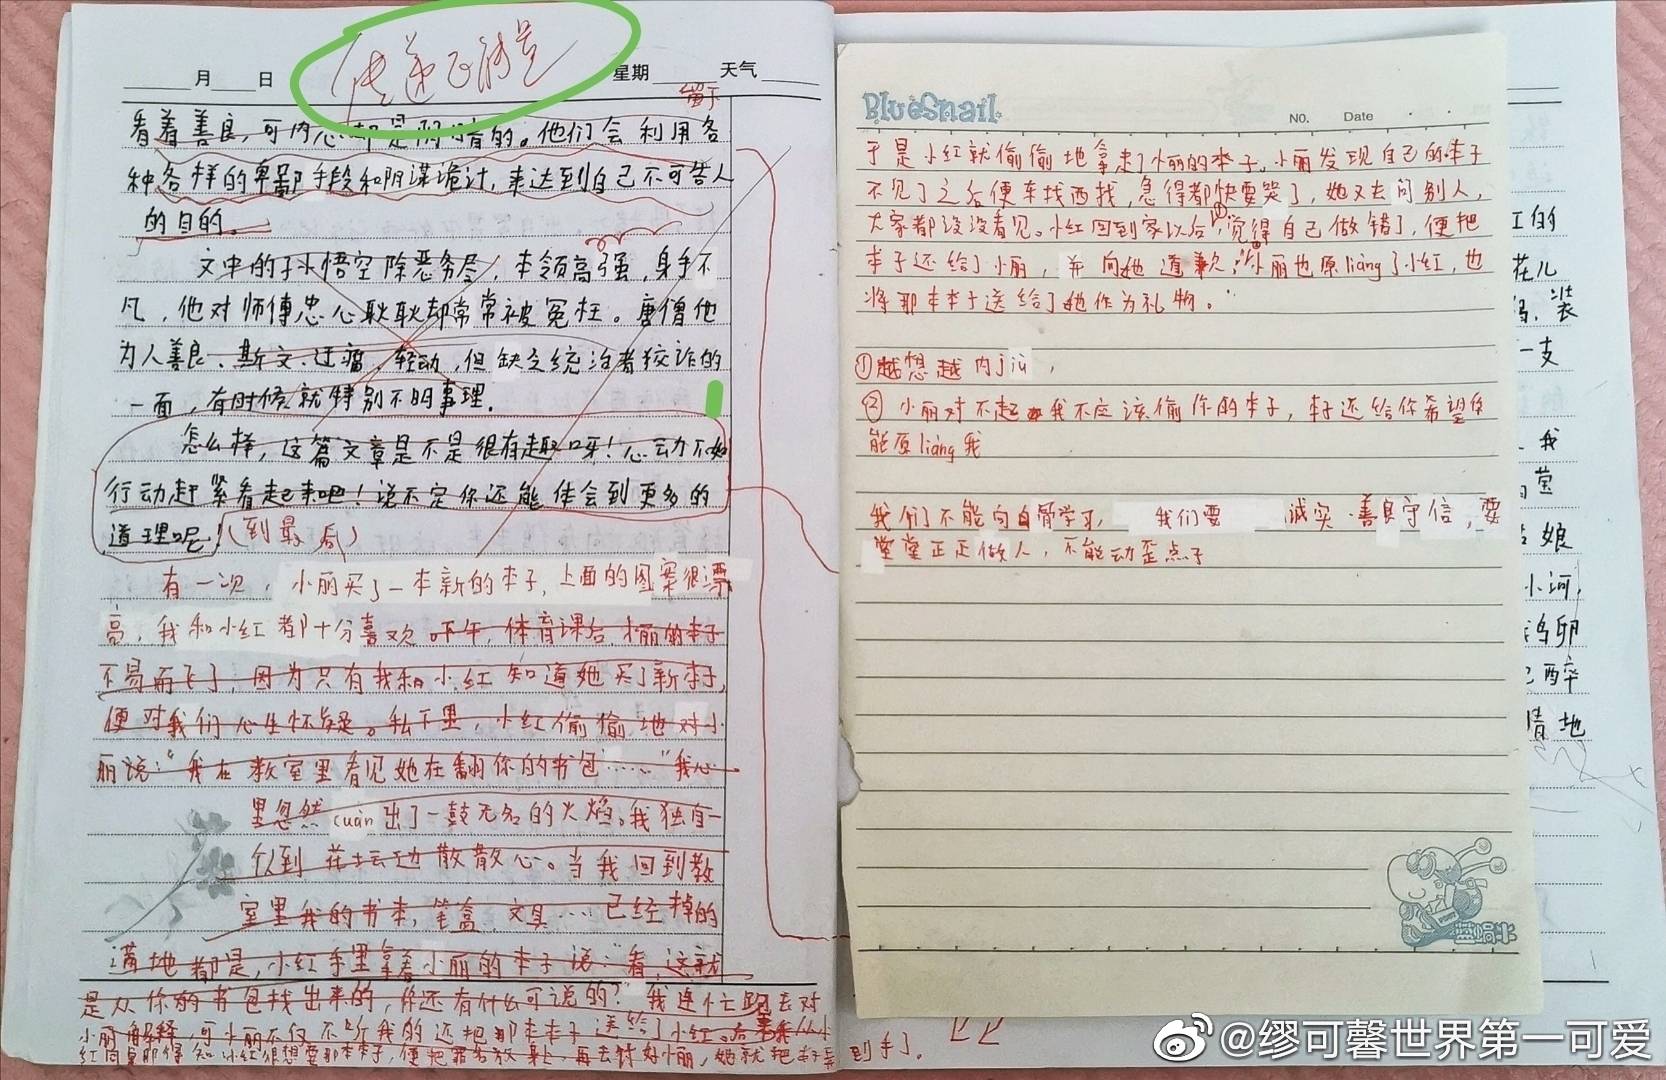 传递正能量
月 日 星期 天气
留下
看着善良，可内心却是阴暗的。他们会利用各
种各样的卑鄙手段和阴谋诡计，来达到自己不可告人
的目的。
文中的孙悟空除恶务尽，本领高强，身手不
凡，他对师傅忠心耿耿却常常被冤枉。唐僧他
为人善良、斯文、迂腐，轻动，但缺乏统治者狡诈的
一面，有时候就特别不明事理。
怎么样，这篇文章是不是很有趣呀！心动不如
行动赶紧看起来吧！说不定你还能体会到更多的
道理呢！（到最后）
有一次，小丽买了一本新的本子，上面的图案很漂
亮，我和小红都十分喜欢。下午，体育课后，小丽的本子
不易而飞了，因为只有我和小红知道她买了新本子，
便对我们心生怀疑。私下里，小红偷偷地对小
丽说：“我在教室里看见她在翻你的书包……”我心
里忽然cuān出了一鼓无名的火焰。我独自一
人到花坛边散散心。当我回到教
室里我的书本，笔盒，文具…已经掉的
满地都是，小红手里拿着小丽的本子说：“看，这就
是从你的书包找出来的，你还有什么可说的？”我连忙跑去对
小丽解释，可小丽不仅不听我的还把那本本子送给了小红。后来我从小
红同桌那得知小红很想要那本本子，便把罪名放 再去讨好小丽，她就把本子弄到手了。
BlueSnail
NO. Date
于是小红就偷偷地拿走了小丽的本子。小丽发现自己的本子
不见了之后便东找西找，急得都快要哭了，她又去问别人，
大家都说没看见。小红回到家以后①，觉得自己做错了，便把
本子还给了小丽，并向她道歉：“②”小丽也原liàng了小红，也
将那本本子送给了她作为礼物。
①越想越内jiù，
②小丽对不起我不应该偷你的本子，本子还给你希望你
能原liàng我
我们不能向白骨学习， 我们要 诚实、善良守信，要
堂堂正正做人，不能动歪点子
蓝蜗牛
红的
花儿
妈，装
一支
，我
娘
小河，
鸟卵
已醉
情地
@缪可馨世界第一可爱